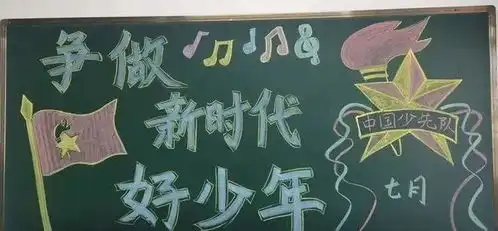 争做
新时代
好少年
中国少先队
七月